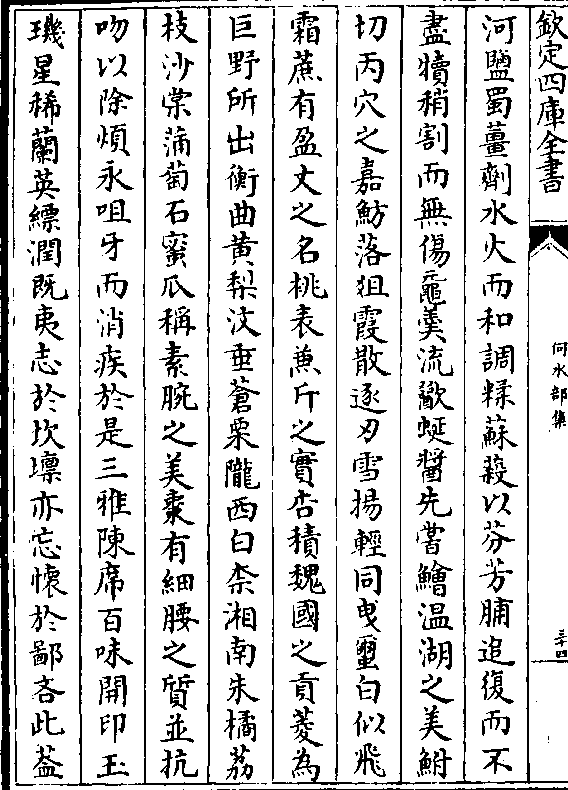 欽定四庫全書
何水部集
三十四
河鹽蜀薑劑水火而和調糅蘇䔑以芬芳脯追復而不
盡犢稍割而無傷黿羮流歠蜒醬先嘗鱠温湖之美鮒
切丙穴之嘉魴落狙霞散逐刃雪揚輕同曳蠒白似飛
霜蔗有盈丈之名桃表兼斤之實杏積魏國之貢菱為
巨野所出衡曲黄梨汶垂蒼栗隴西白柰湘南朱橘荔
枝沙棠蒲萄石蜜瓜稱素腕之美棗有細腰之質並抗
吻以除煩永咀牙而消疾於是三雅陳席百味開印玉
璣星稀蘭英縹潤既夷志於坎壈亦忘懷於鄙吝此葢